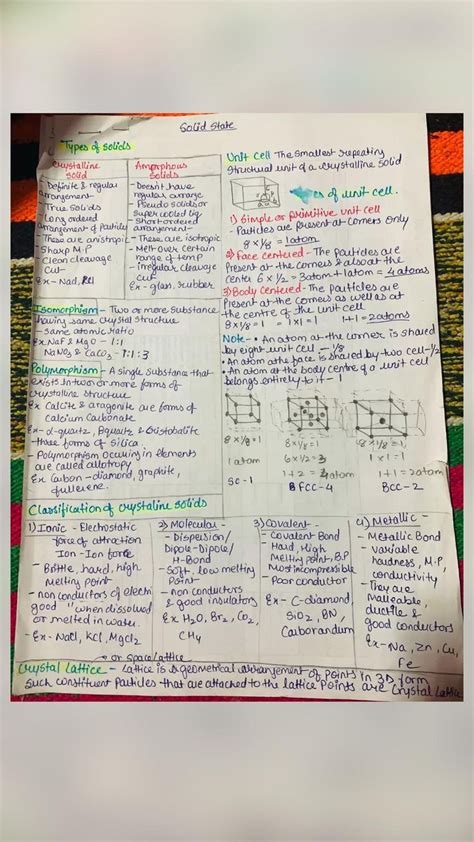 Solid State
Types of solids
Crystalline solid
- Definite & regular
arrangement
- True Solids
- Long ordered
arrangement of particles
- These are anistropic
- Sharp M.P
- Clean cleavage
cut
Ex - NaCl, KCl
Amorphous Solids
- Doesn't have
regular arrange.
- Pseudo Solids or
Super cooled liq
- Short ordered
arrangement
- These are isotropic
- Melt over certain
range of temp
- irregular cleavage
cut
Ex - glass, rubber
Isomorphism - Two or more substance
having same crystal structure
- same atomic ratio
Ex NaF & MgO - 1:1
NaNO3 & CaCO3 - 1:1:3
Polymorphism - A single substance that
exists in two or more forms of
crystalline structure
Ex Calcite & aragonite are forms of
calcium carbonate
Ex - α-quartz, βquartz & Cristobalite
- three forms of silica
- Polymorphism occuring in elements
are called allotropy
Ex Carbon - diamond, graphite,
fullerene.
Unit Cell The smallest repeating
structural unit of a crystalline solid
es of unit cell.
1) Simple or primitive unit cell
- Particles are present at corners only
8 x 1/8 = 1atom
2) Face centered - The particles are
present at the corners & also at the
center 6 x 1/2 = 3atom + 1atom = 4atoms
3) Body Centered - The particles are
present at the corners as well as at
the centre of the unit cell
8 x 1/8 = 1 1x1 = 1 1+1 = 2atoms
Note - • An atom at the corner is shared
by eight unit cell - 1/8
• An atom at the face is shared by two cell - 1/2
• An atom at the body centre of a unit cell
belongs entirely to it - 1
8 x 1/8 = 1
1 atom
SC - 1
8 x 1/8 = 1
6 x 1/2 = 3
1+2 = 4atom
FCC - 4
8 x 1/8 = 1
1 x 1 = 1
1+1 = 2atom
BCC - 2
Classification of crystaline solids
1) Ionic - Electrostatic
force of attraction
Ion - Ion force
- Brittle, hard, high
Melting point
- non conductors of electri
good "when dissolved
or melted in water.
- Ex - NaCl, KCl, MgCl2
2) Molecular -
- Dispersion/
Dipole-Dipole/
H-Bond
- Soft, low melting
point
- non conductors
& good insulators
Ex H2O, Br2, CO2,
CH4
3) Covalent -
- Covalent Bond
- Hard, High
Melting point, B.P
Most incompressible
- Poor conductor
Ex - C-diamond,
SiO2, BN,
Carborandum
4) Metallic -
- Metallic Bond
- variable
hardness, M.P,
conductivity
- They are
malleable,
ductile &
good conductors
Ex - Na, Zn, Cu,
Fe
or Space lattice
Crystal Lattice - Lattice is a geometrical arrangement of Points in 3D form
Such constituent Particles that are attached to the lattice Points are Crystal Lattice